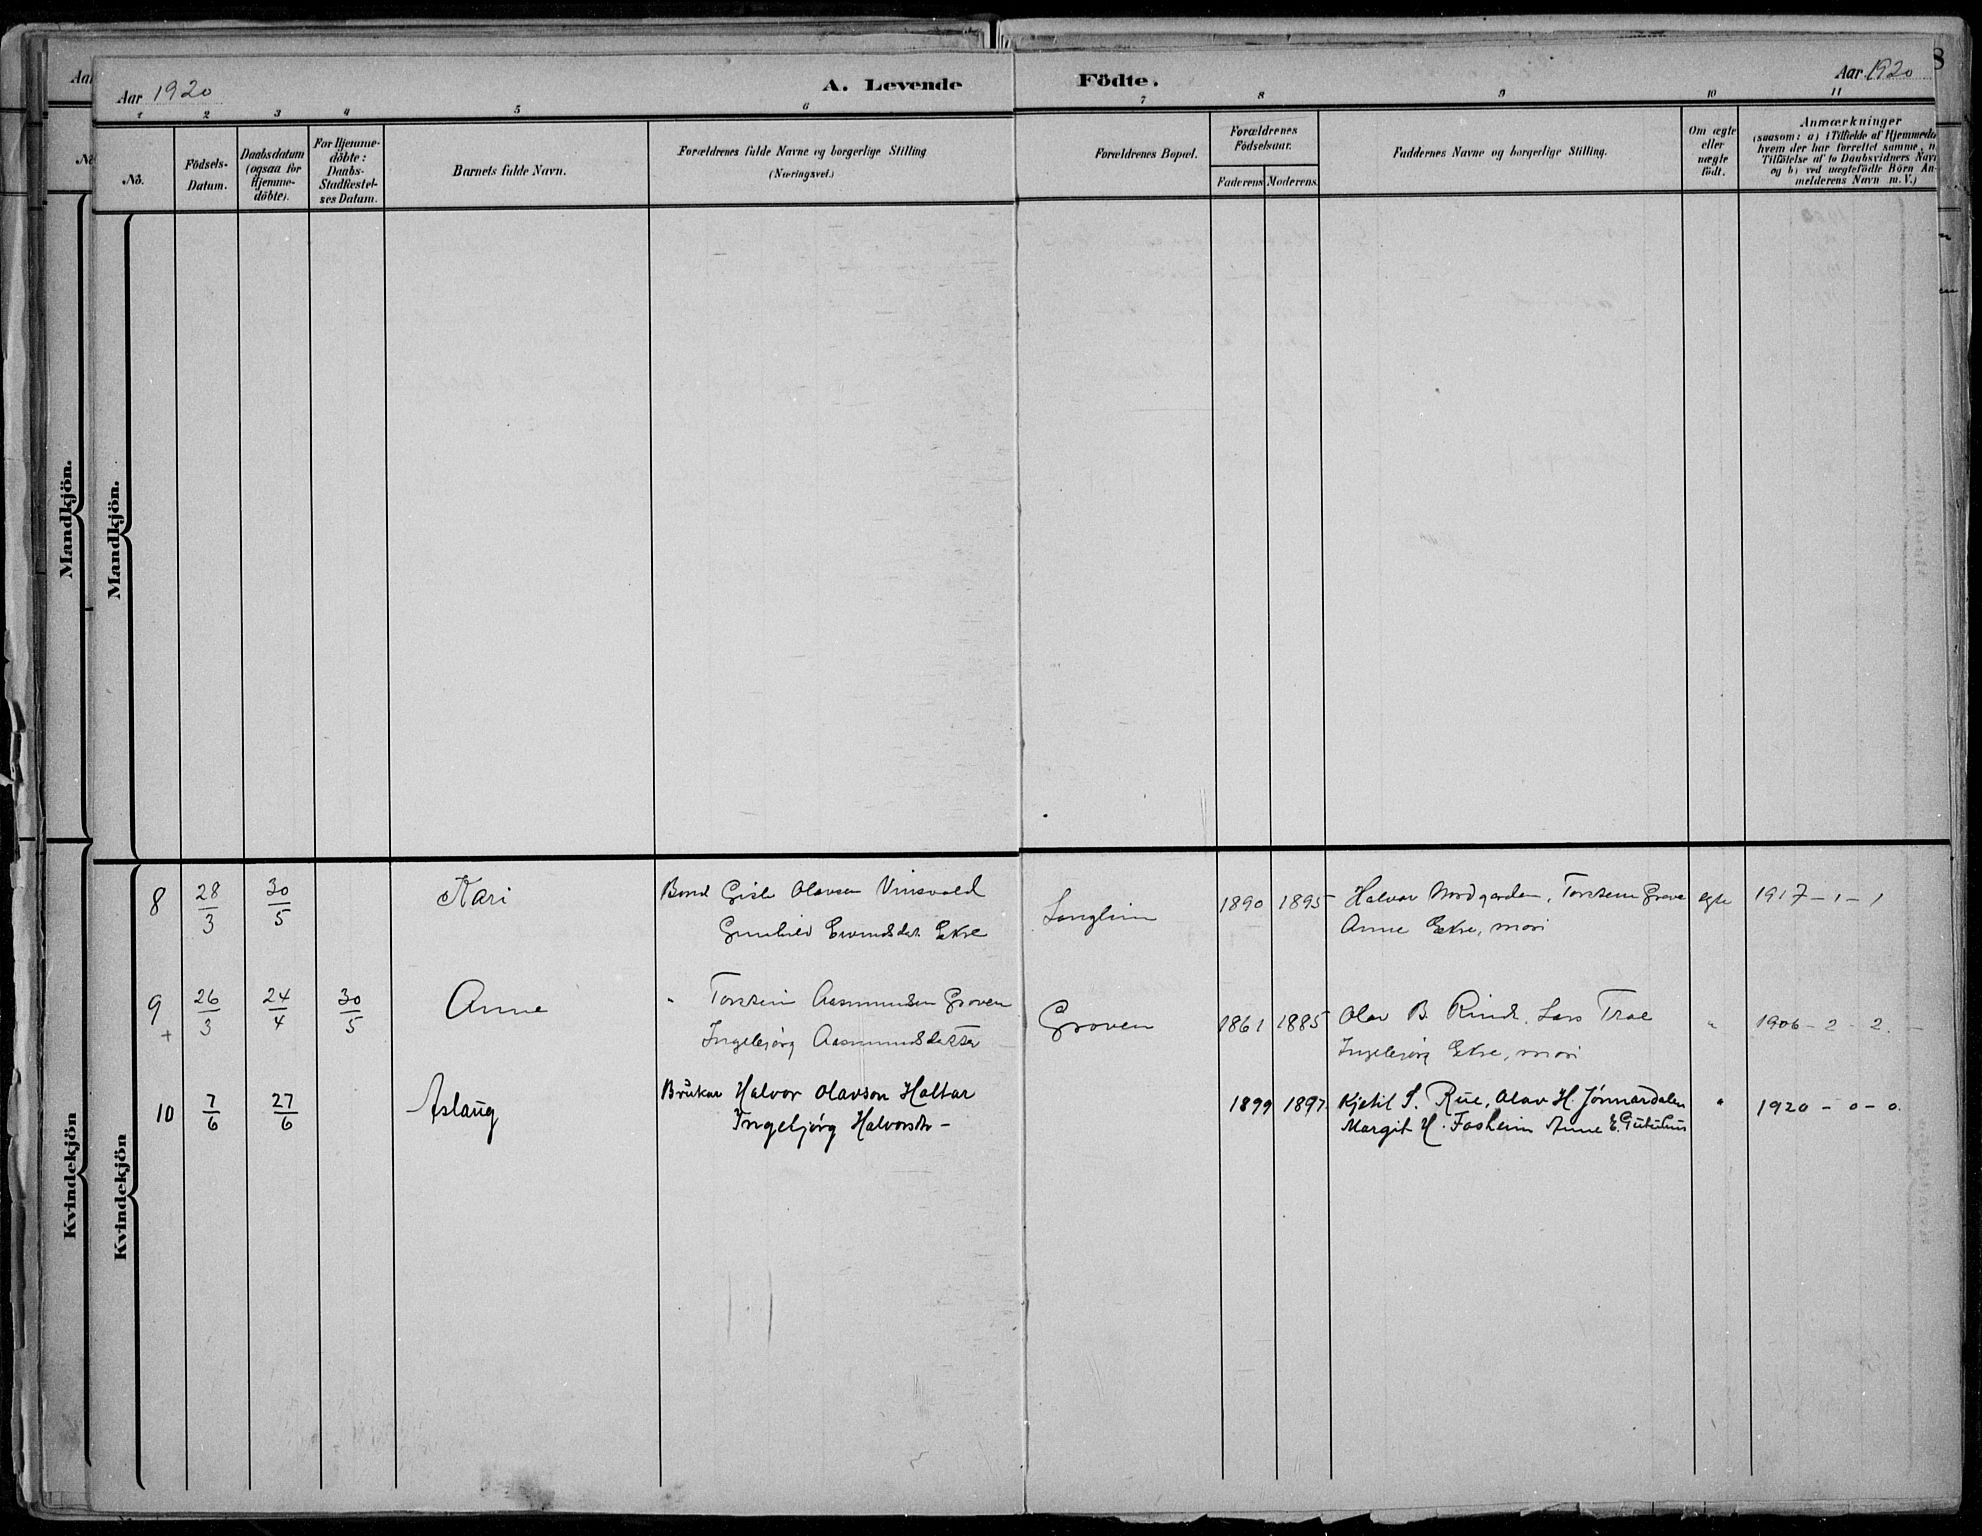 Aar 1920
A. Levende
Födte.
Aar 1920
8
Aar
1 2 3 4 5 6 7 8 9 10 11
No.
Födsels-
Datum.
Daabsdatum
(ogsaa for
Hjemme-
döbte).
For Hjemme-
döbte:
Daabs-
Stadfæstel-
ses Datum.
Barnets fulde Navn.
Forældrenes fulde Navne og borgerlige Stilling
(Næringsvei.)
Forældrenes Bopæl.
Forældrenes
Födselsaar.
Faderens.
Moderens.
Faddernes Navne og borgerlige Stilling.
Om ægte
eller
uægte
född.
Anmærkninger
(saasom: a) i Tilfælde af Hjemmeda
hvem der har forrettet samme, n
Tilföielse af to Daabsvidners Navn
og b) ved uægtefödte Börn An-
melderens Navn m. V.)
Mandkjön.
Mandkjön.
Kvindekjön
Kvindekjön
8 28/3 30/5 Kari Bond Gisle Olavsen Vinsvald Langlim 1890 1895 Halvor Nordgarden, Torstein Grave egte 1917 - 1 - 1
Gunhild Eivindsdat. Ekre Anne Ekre, mori
9 26/3 24/4 30/5 Anne " Torstein Aasmundsen Groven Groven 1861 1885 Olav B. Rind. Lars Trae " 1906 - 2 - 2. -
+ Ingebjörg Aasmundsdatter Ingebjörg Ekre, mori
10 7/6 27/6 Aslaug Brukar Halvor Olavson Haltar 1899 1897. Kjetil S. Rue, Olav H. Jönnardalen " 1920 - 0 - 0.
Ingebjörg Halvorsdr - Margit H. Fosheim Anne E.